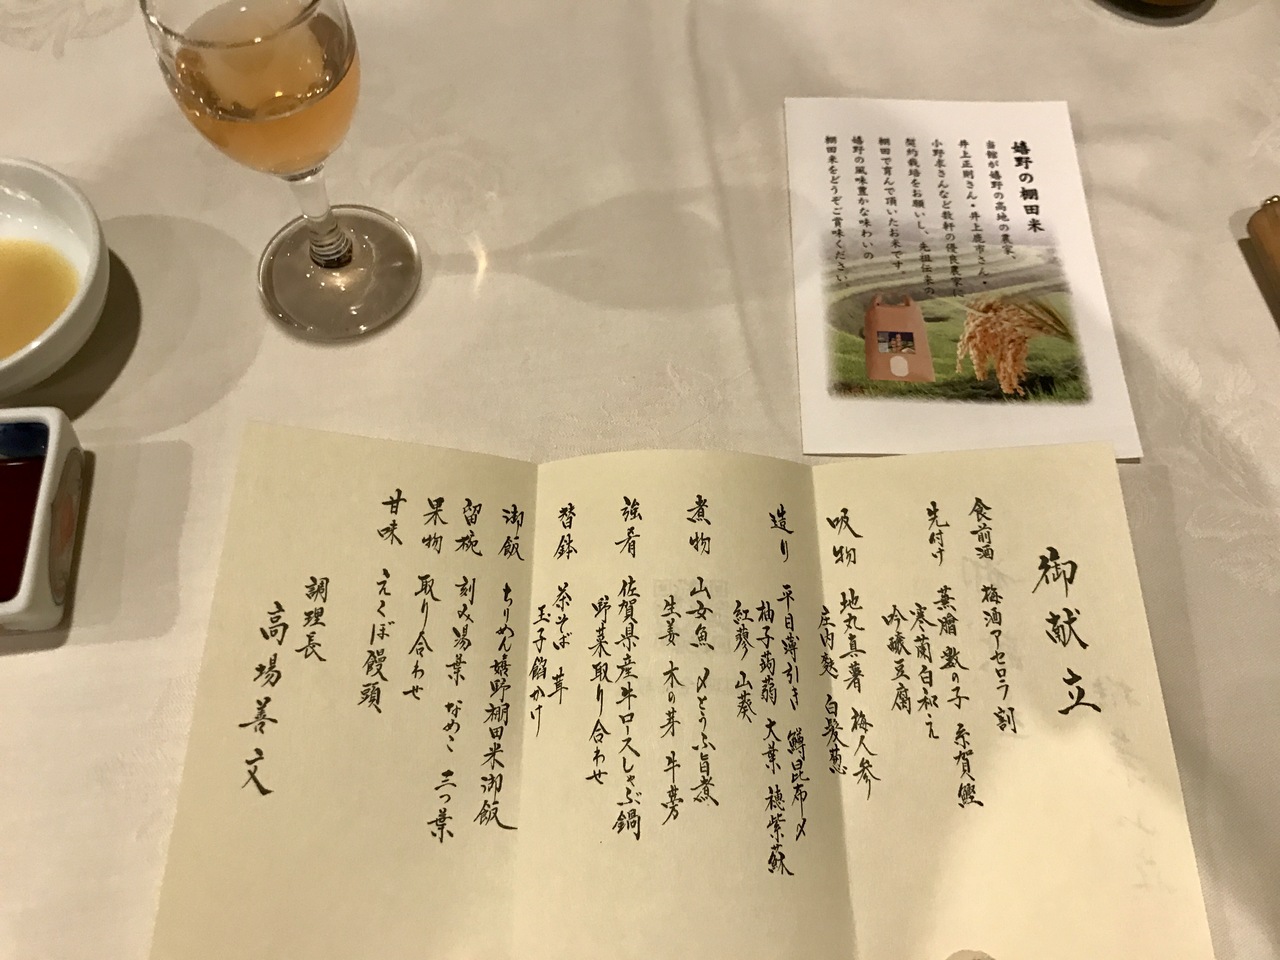 嬉野の棚田米
当館が嬉野の高地の農家、
井上正剛さん・井上鹿市さん・
小野原さんなど数軒の優良農家に
契約栽培をお願いし、先祖伝来の
棚田で育んで頂いたお米です。
嬉野の風味豊かな味わいの
棚田米をどうぞご賞味ください。
御献立
食前酒 梅酒アセロラ割
先付け 蒸鱠 数の子 糸賀鰹
寒蘭白和え
吟醸豆腐
吸物 地丸真薯 梅人参
庄内麩 白髪葱
造り 平目薄引き 鱒昆布〆
柚子蒟蒻 大葉 穂紫蘇
紅蓼 山葵
煮物 山女魚 〆とうふ旨煮
生姜 木の芽 牛蒡
強肴 佐賀県産牛ロースしゃぶ鍋
野菜取り合わせ
替鉢 茶そば 茸
玉子餡かけ
御飯 ちりめん嬉野棚田米御飯
留椀 刻み湯葉 なめこ 三つ葉
果物 取り合わせ
甘味 えくぼ饅頭
調理長
高場善文